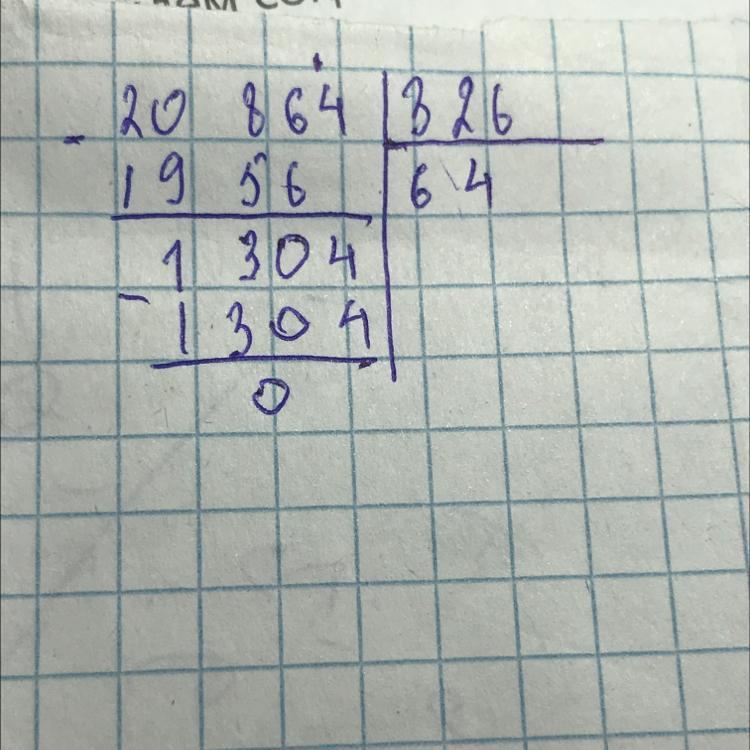 20 864 | 326
- 19 56 | 64
1 304
- 1 304
0